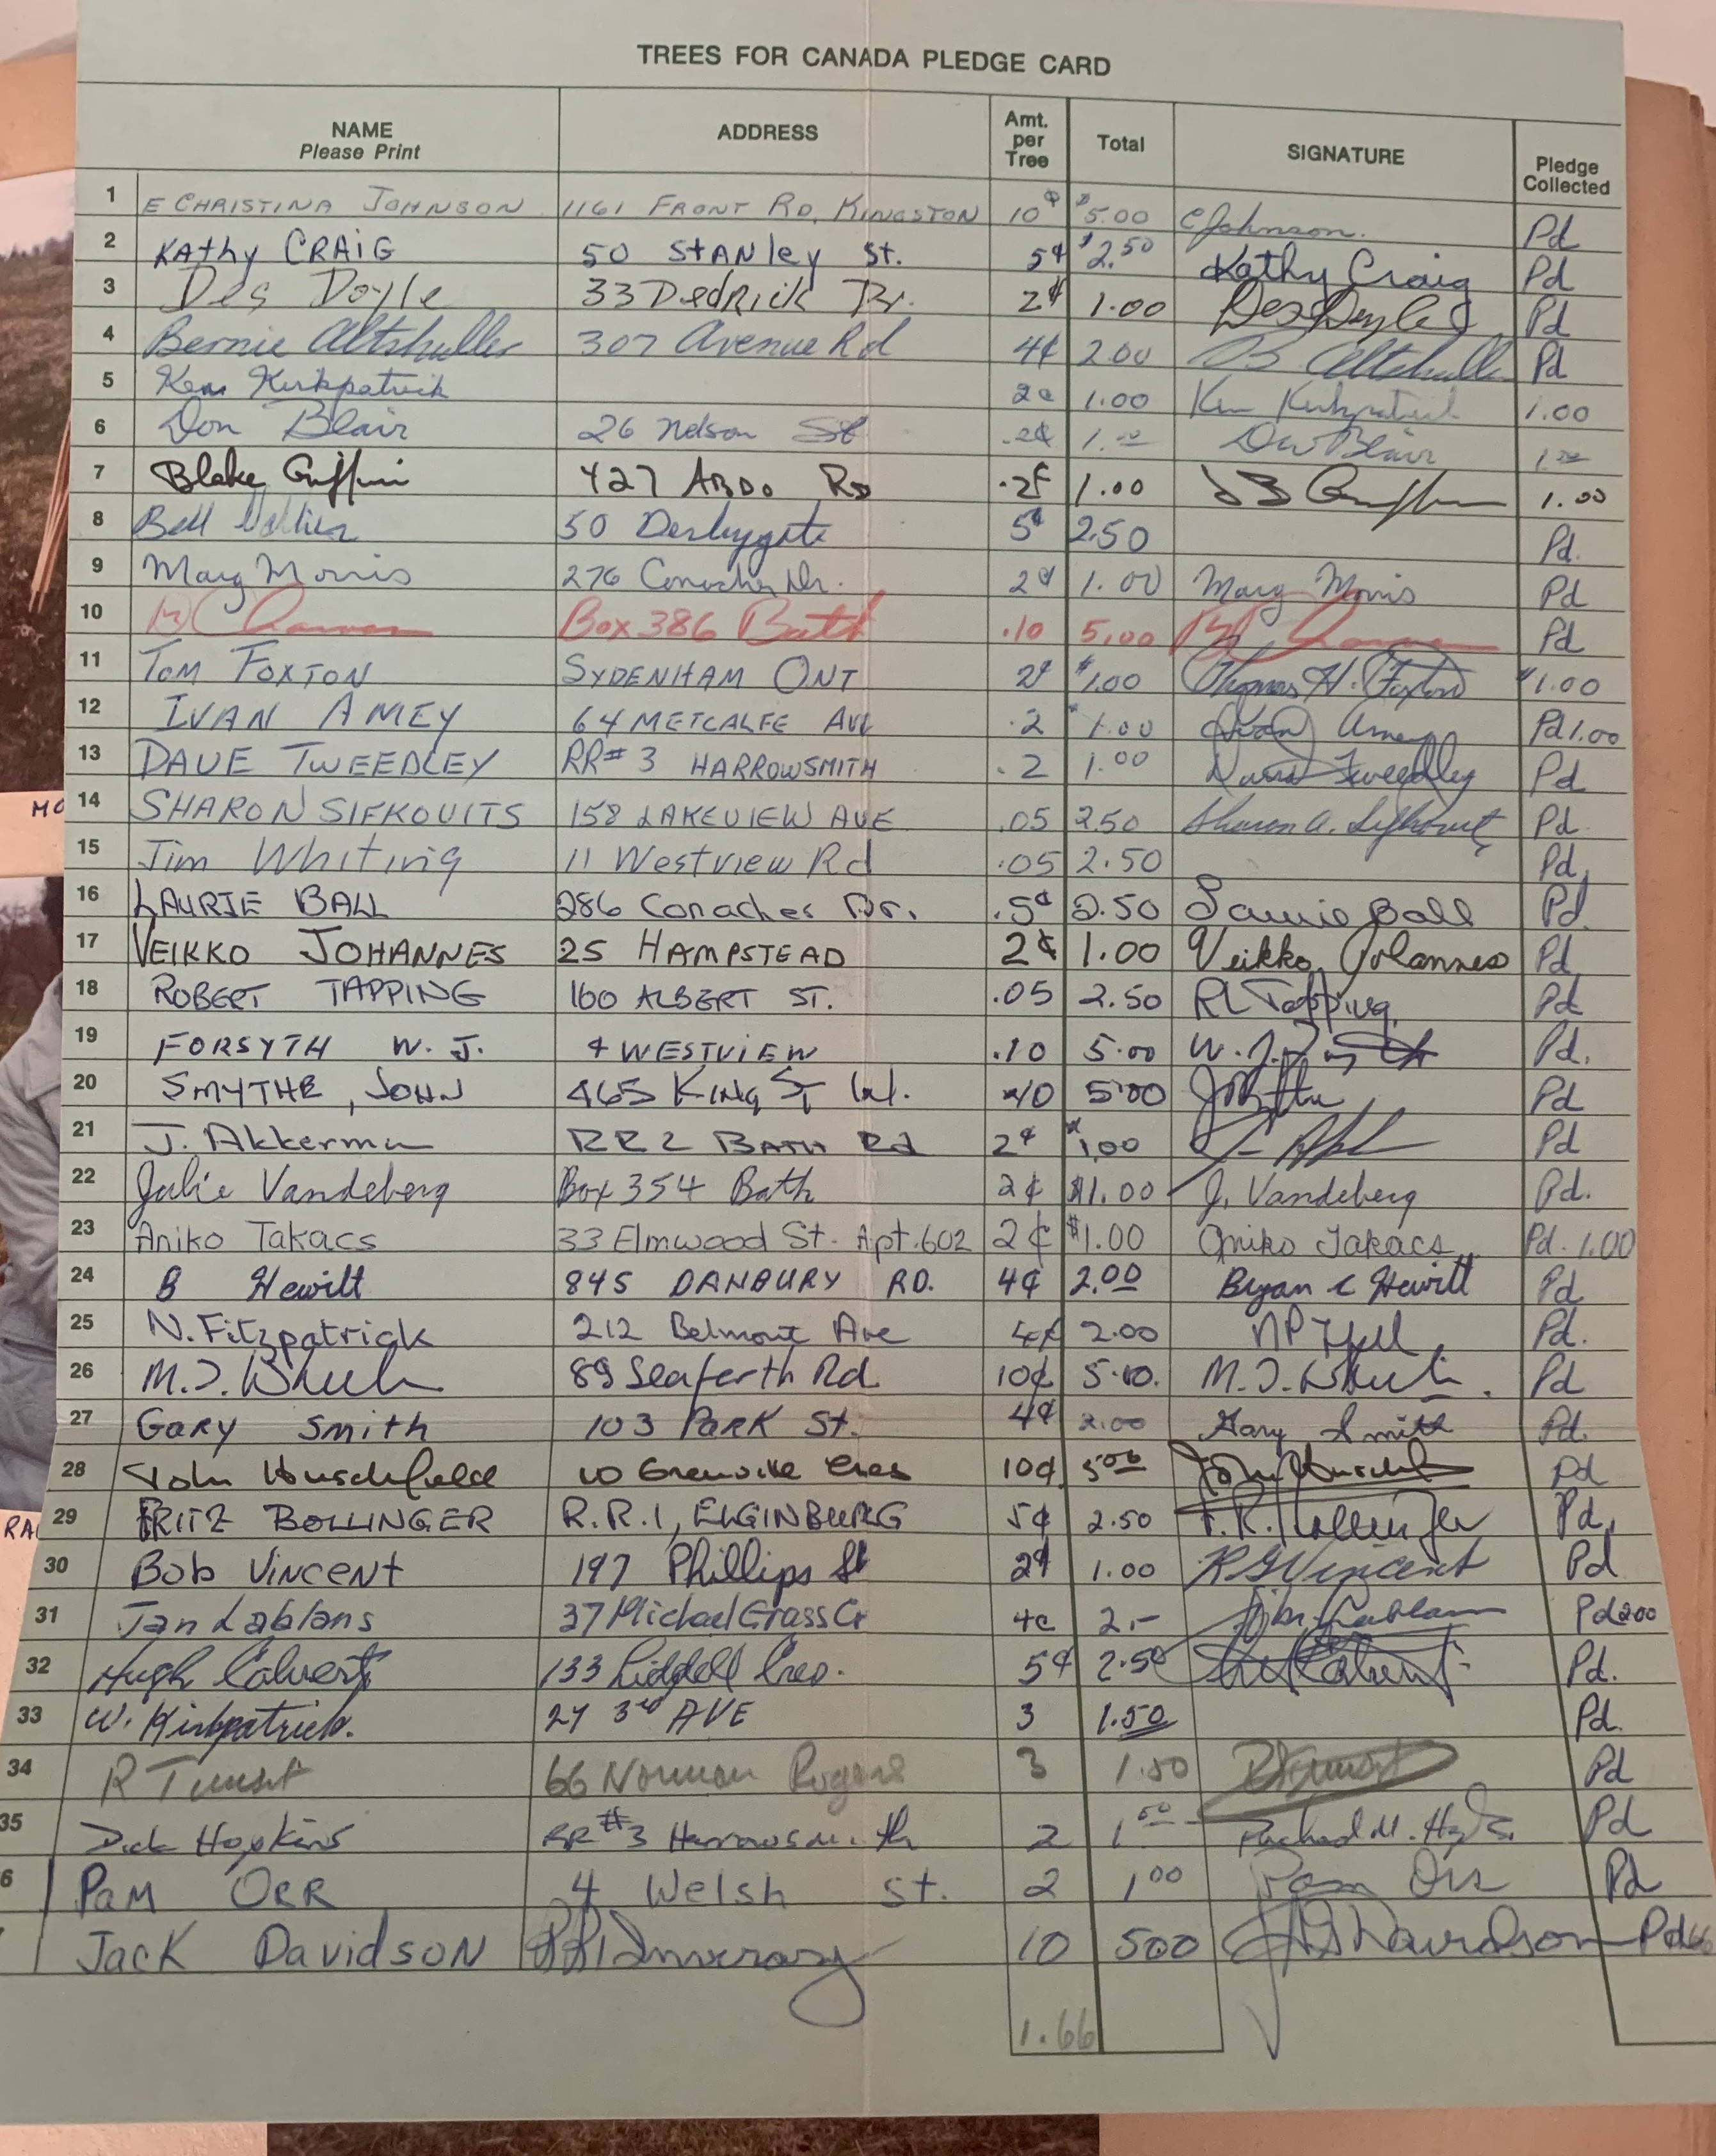 TREES FOR CANADA PLEDGE CARD
NAME Please Print ADDRESS Amt. per Tree Total SIGNATURE Pledge Collected
1 E CHRISTINA JOHNSON 1161 FRONT RD, KINGSTON 10¢ $5.00 C Johnson. Pd
2 Kathy CRAIG 50 STANley St. 5¢ $2.50 Kathy Craig Pd
3 Des Doyle 33 Dedrick Dr. 2¢ 1.00 Des Doyle Pd
4 Bernie Altshuller 307 Avenue Rd 4¢ 2.00 B Altshuller Pd
5 Ken Kirkpatrick 2¢ 1.00 Ken Kirkpatrick 1.00
6 Don Blair 26 Nelson St .2¢ 1.00 Don Blair 1.00
7 Blake Griffin 427 ABDO RD .2¢ 1.00 B Griffin 1.00
8 Bell 50 Derbygate 5¢ 2.50 Pd.
9 Marg Morris 276 Conacher Dr. 2¢ 1.00 Marg Morris Pd
10 Box 386 Bath .10 5.00 Pd
11 TOM FOXTON SYDENHAM ONT 2¢ $1.00 Thomas H. Foxton $1.00
12 IVAN AMEY 64 METCALFE AVE .2 $1.00 Ivan Amey Pd 1.00
13 DAVE TWEEDLEY RR# 3 HARROWSMITH .2 1.00 David Tweedley Pd
14 SHARON SIFKOVITS 158 LAKEVIEW AVE .05 2.50 Sharon A. Sifkovits Pd
15 Jim Whiting 11 Westview Rd .05 2.50 Pd.
16 LAURIE BALL 286 Conacher Dr. .5¢ 2.50 Laurie Ball Pd.
17 VEIKKO JOHANNES 25 HAMPSTEAD 2¢ 1.00 Veikko Johannes Pd
18 ROBERT TAPPING 160 ALBERT ST. .05 2.50 RL Tapping Pd
19 FORSYTH W. J. 4 WESTVIEW .10 5.00 W. J. Pd.
20 SMYTHE, JOHN 465 KING ST W. 10 5.00 Pd
21 J. Akkerman RR2 BATH Rd 2¢ $1.00 Pd
22 Julie Vandeberg Box 354 Bath 2¢ $1.00 J. Vandeberg Pd.
23 Aniko Takacs 33 Elmwood St. Apt.602 2¢ $1.00 Aniko Takacs Pd. 1.00
24 B Hewitt 845 DANBURY RD. 4¢ 2.00 Bryan C Hewitt Pd
25 N. Fitzpatrick 212 Belmont Ave 4¢ 2.00 Pd.
26 M.J. 89 Seaforth Rd 10¢ 5.00. M.J. Pd
27 GARY Smith 103 PARK St. 4¢ 2.00 Gary Smith Pd.
28 John Hirschfield 10 Grenville Cres 10¢ 5.00 John Pd
29 FRITZ BOLLINGER R.R.1, ELGINBURG 5¢ 2.50 F.R. Bollinger Pd.
30 Bob Vincent 197 Phillips St 2¢ 1.00 RG Vincent Pd
31 Jan Lablans 37 Michael Grass Cr 4c 2.- Pd 2.00
32 Hugh Calvert 133 Liddell Cres. 5¢ 2.50 Calvert Pd.
33 W. Kirkpatrick. 27 3rd AVE 3 1.50 Pd.
34 R 66 Norman Rogers 3 1.50 Pd
35 Dick Hopkins RR #3 Harrowsmith 2 1.00 Richard M. Pd
6 PAM ORR 4 Welsh St. 2 1.00 Pam Orr Pd
JACK DAVIDSON RR1 Inverary 10 500 Davidson Pd
1.66